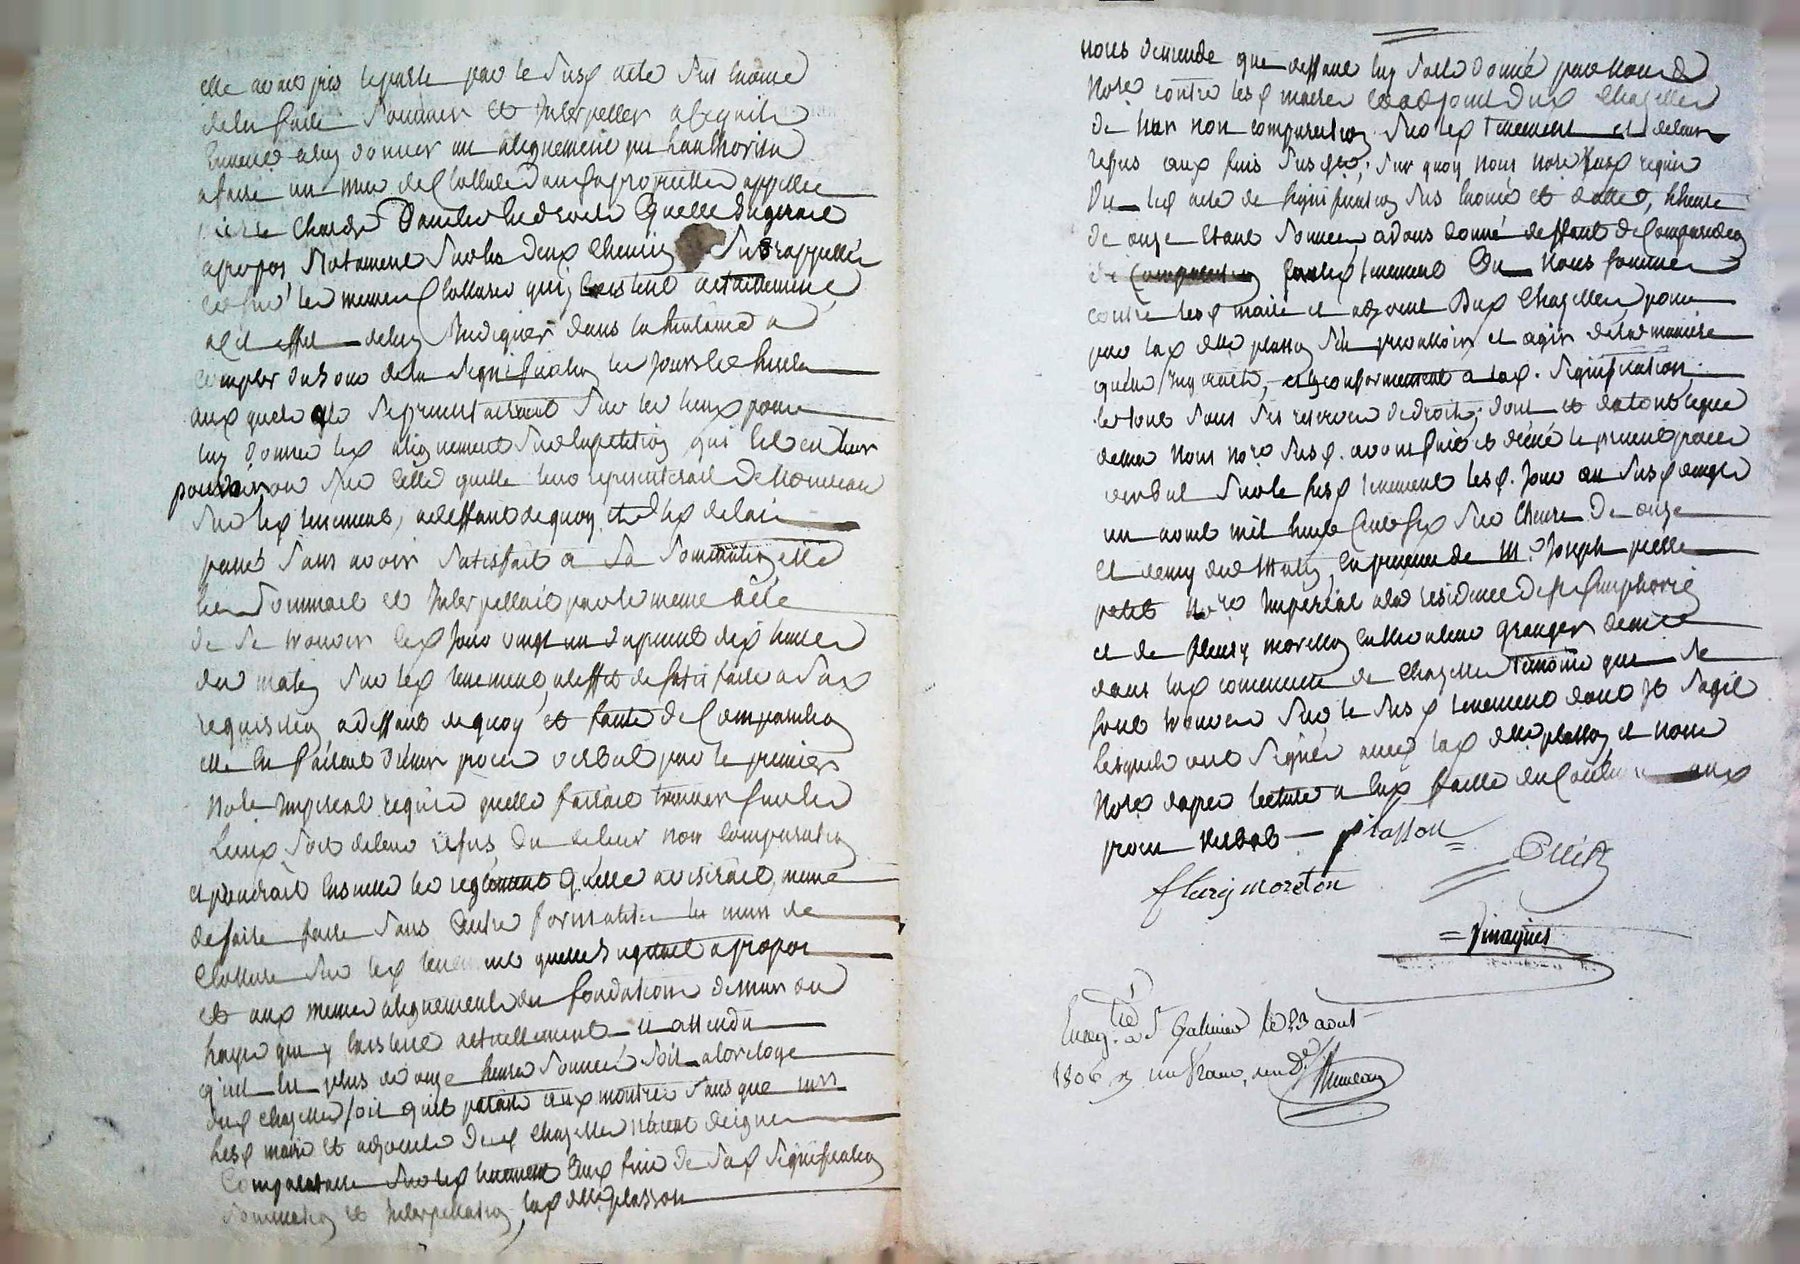 elle avait pris le parti par le susd acte sus énoncé
de les faire sommer et interpeller a ce qu'ils
a luy donner un alignement qui l'authorisa
a faire un mur de Cloture dans sa propriété appellée
Charde Quelle Jugerait
apropos, Notament sur les deux Chemins sus rappellés
les mêmes Clotures qui y existent actuellement,
a cet effet de luy indiquer dans la huitaine a
compter du jour de la signification les jours et heure
auxquels ils se presenteraient sur les lieux pour
luy donner led alignement sur la petition qui est en leur
pouvoir ou sur celle quelle leur representerait de Nouveau
sur led tenement, a deffaut de quoy, et led delai
passé sans avoir satisfait a sa sommation elle
les sommait et interpellait par le meme acte
de se trouver led jour vingt un du present dix heures
du matin sur led tenement, a leffet de satisfaire a sad
requisition a deffaut de quoy et faute de Comparution
elle en fairait dresser procès verbal par le premier
Note Imperial requis quelle fairait trouver sur les
Lieux, soit de leur refus ou de leur non Comparution
et prendrait ensuite les reglement Quelle aviserait, meme
de faire faire sans autre formalité les murs de
Cloture sur led tenement quelle Jugerait apropos
et aux mêmes alignements des fondations de murs ou
hayes qui y existent actuellement et attendu
qu'il est plus de onze heures sonnées soit a lorologe
dud Chazelles soit qu'il paraisse aux montres sans que
lesd maire et adjoints dud Chazelles n'aient daigné
Comparaitre sur led tenement aux fins de sad signification
sommation et interpellation, lad dlle plasson
nous demande que deffaut luy soit donné par nous d
Note contre lesd maire et adjoint dud Chazelles
de leur non comparution sur led tenement et de leur
refus aux fins susd. sur quoy nous note susd requis
Vu led acte de signification sus énoncé et datté, l'heure
de onze étant sonnée, avons donné deffaut de Comparution
sur led tenement Ou Nous sommes
contre lesd maire et adjoint dud Chazelles, pour
par lad dlle plasson s'en prevaloir et agir de la maniere
quelle jugerait, et conformement a lad. signification,
le tout sous ses reserves de droits; dont et de tout ce que
dessus Nous note susd. avons fait et dressé le present procès
verbal sur le susd tenement lesd. jour an susd vingt
un aout mil huit Cent six sur lheure de onze
et demy du Matin, en presence de M. Joseph pierre
petit Nore Imperial a la residence de st Simphorien
et de fleury moreton granger demt
dans lad commune de Chazelles temoins que se
sont trouvés sur le susd tenement dont Il sagit
Lesquels ont signé avec lad dlle plasson et nous
Nore dapres lecture a eux faitte du Contenu aud
procès verbal — plasson
petit
fleury moreton
Enreg.tré a St Galmier le 23 aout
1806 un franc,